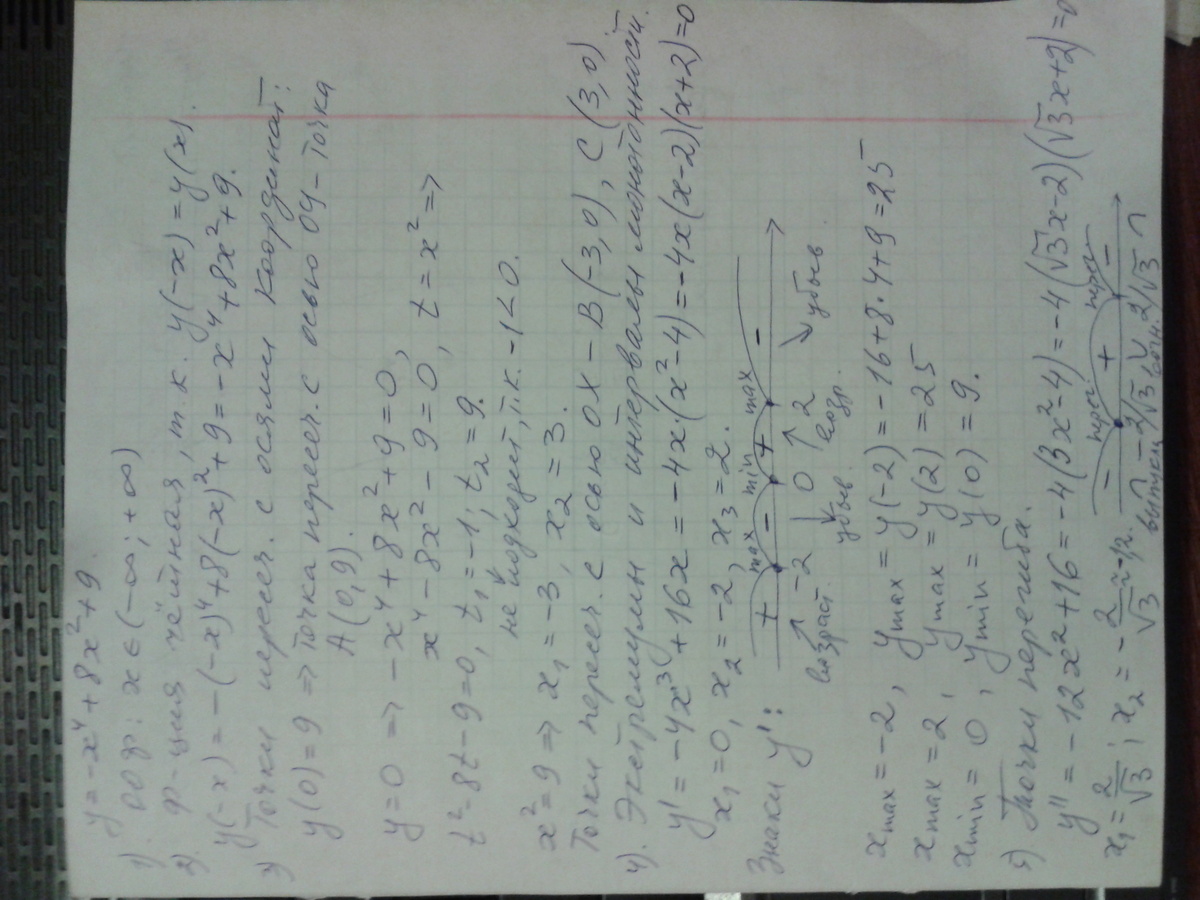 y = -x⁴ + 8x² + 9
1) ООФ: x ∈ (-∞; +∞)
2) Ф-ция чётная, т.к. y(-x) = y(x).
y(-x) = -(-x)⁴ + 8(-x)² + 9 = -x⁴ + 8x² + 9.
3) Точки перееч. с осями координат:
y(0) = 9 => точка пересеч. с осью ОУ - точка
A(0, 9).
y = 0 => -x⁴ + 8x² + 9 = 0,
x⁴ - 8x² - 9 = 0, t = x² =>
t² - 8t - 9 = 0, t₁ = -1; t₂ = 9.
не подходит, т.к. -1 < 0.
x² = 9 => x₁ = -3, x₂ = 3.
Точки пересеч. с осью ОХ - B(-3, 0), C(3, 0)
4). Экстремумы и интервалы монотонности.
y' = -4x³ + 16x = -4x·(x² - 4) = -4x(x-2)(x+2) = 0
x₁ = 0, x₂ = -2, x₃ = 2.
Знаки y': + max - min + max -
↗ -2 ↓ 0 ↗ 2 ↘ убыв.
возраст. убыв. возр.
x max = -2, y max = y(-2) = -16 + 8·4 + 9 = 25
x max = 2, y max = y(2) = 25
x min = 0, y min = y(0) = 9.
5) Точки перегиба.
y'' = -12x² + 16 = -4(3x² - 4) = -4(√3x - 2)(√3x + 2) = 0
x₁ = 2/√3; x₂ = -2/√3 ≈ -1,2. - перег. + перег. -
∩ -2/√3 ∪ 2/√3 ∩
выпукл. вогн.